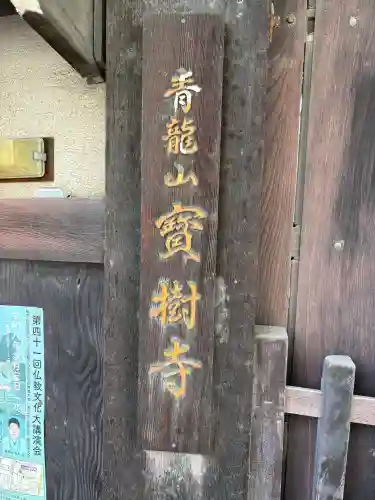 青龍山寳樹寺
第四十一回仏教文化大講演会